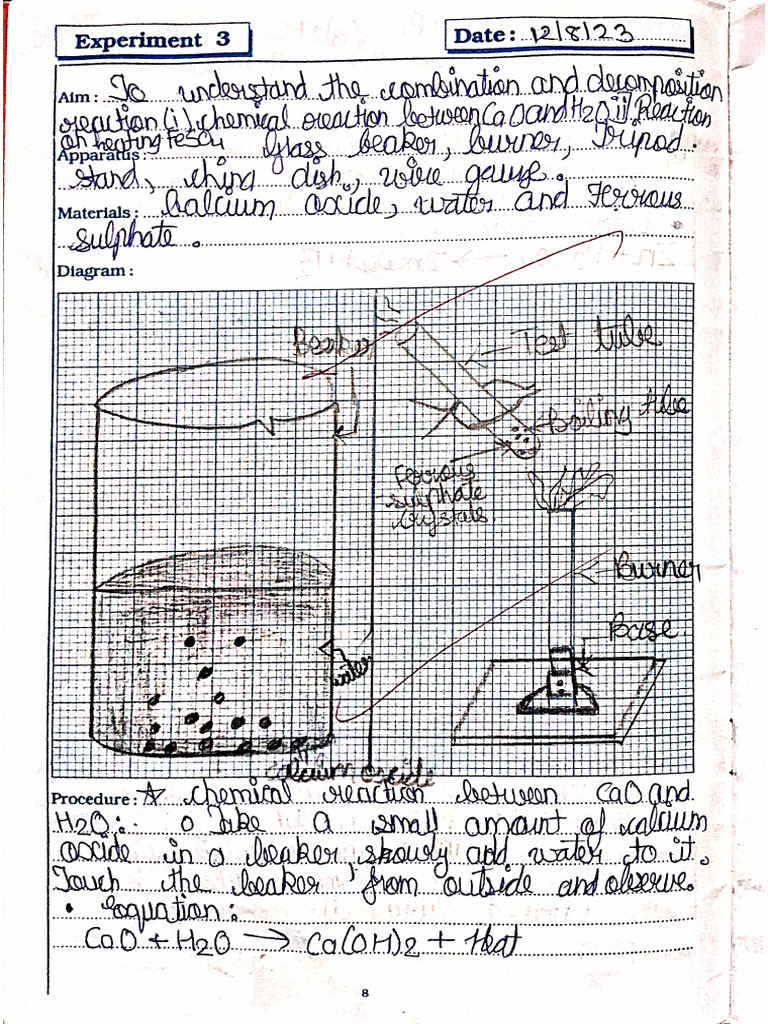 Experiment 3
Date: 12/8/23
Aim: To understand the combination and decomposition
reaction (i) chemical reaction between CaO and H2O ii) Reaction
on heating FeSO4
Apparatus: Glass beaker, burner, Tripod
stand, china dish, wire gauge.
Materials: Calcium oxide, water and Ferrous
sulphate.
Diagram:
Beaker
Test tube
Boiling tube
Ferrous
sulphate
crystals.
Burner
Base
water
calcium oxide
Procedure: ☆ chemical reaction between CaO and
H2O:- o Take a small amount of calcium
oxide in a beaker, slowly add water to it.
Touch the beaker from outside and observe.
• Equation:
CaO + H2O → Ca(OH)2 + Heat
8